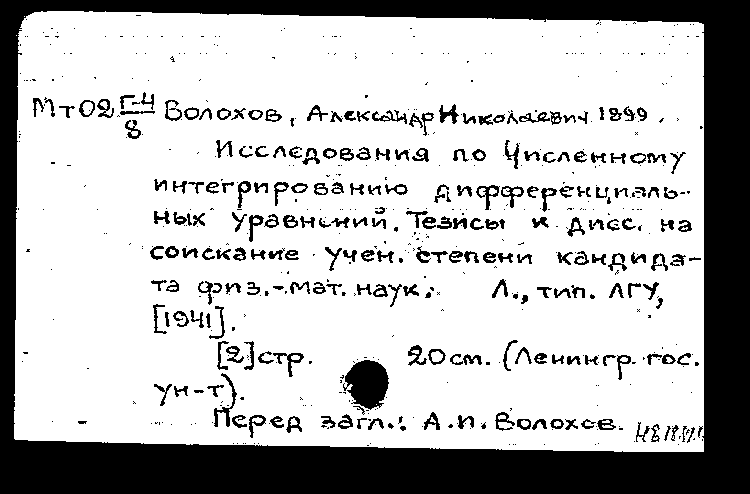 Мт02 Г-4/8 Волохов, Александр Николаевич 1899.
Исследования по Численному
интегрированию дифференциаль-
ных уравнений. Тезисы к дисс. на
соискание учен. степени кандида-
та физ.-мат. наук. Л., тип. ЛГУ,
[1941].
[2] стр. 20 см. (Ленингр. гос.
ун-т).
Перед загл.: А.Н. Волохов.